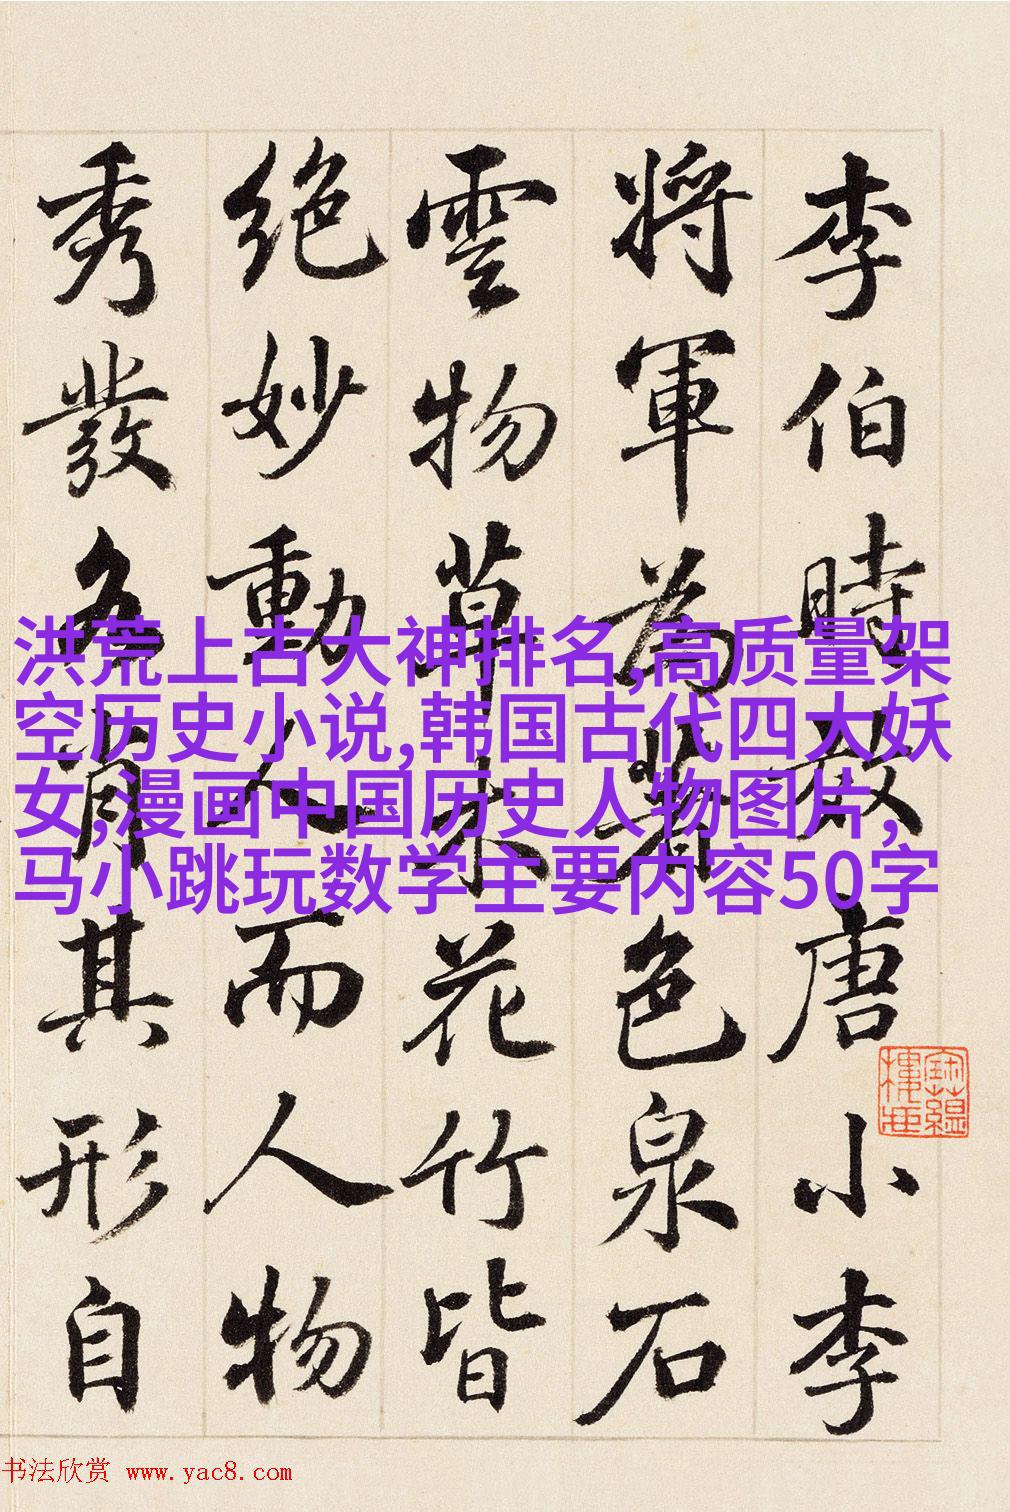 李伯時效唐小李
將軍為著色泉石
雲物草木花竹皆
絕妙動人而人物
秀發各肖其形自
洪荒上古大神排名,高质量架
空历史小说,韩国古代四大妖
女,漫画中国历史人物图片,
马小跳玩数学主要内容50字
书法欣赏 www.yac8.com